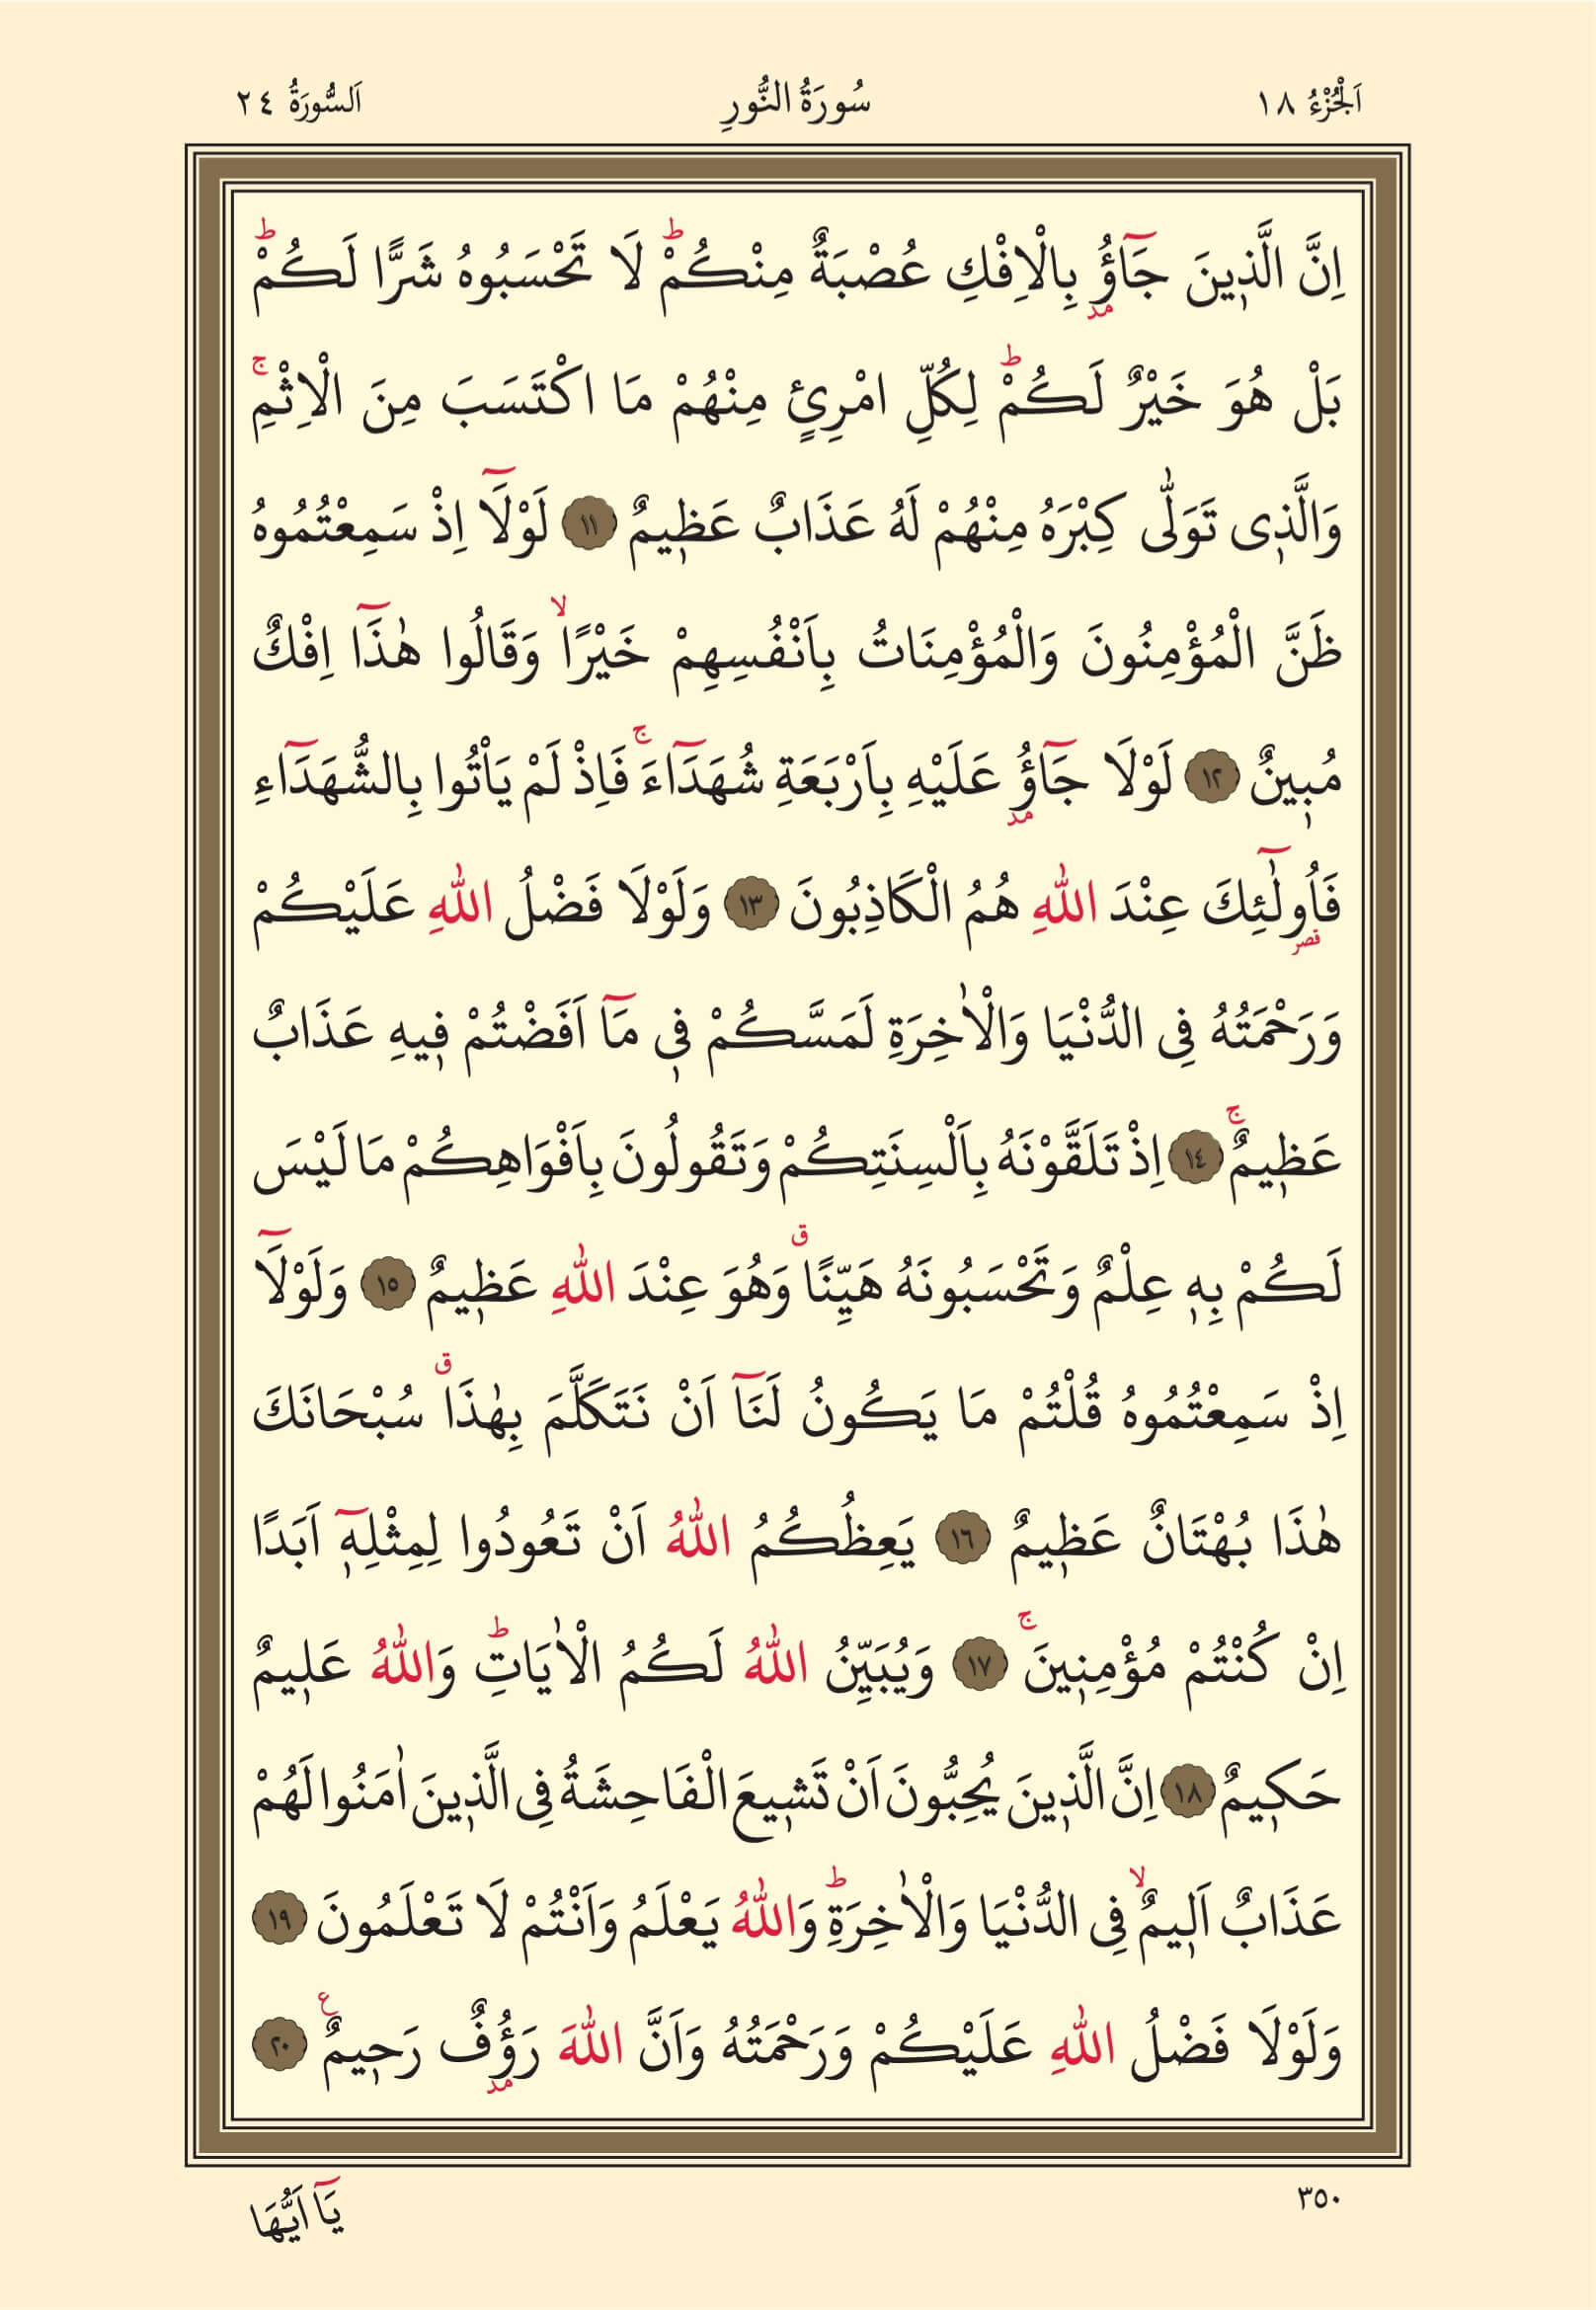 اَلْجُزْءُ ١٨
سُورَةُ النُّورِ
اَلسُّورَةُ ٢٤
اِنَّ الَّذ۪ينَ جَٓاؤُ۫ بِالْاِفْكِ عُصْبَةٌ مِنْكُمْۜ لَا تَحْسَبُوهُ شَرًّا لَكُمْۜ
بَلْ هُوَ خَيْرٌ لَكُمْۜ لِكُلِّ امْرِئٍ مِنْهُمْ مَا اكْتَسَبَ مِنَ الْاِثْمِۚ
وَالَّذ۪ى تَوَلّٰى كِبْرَهُ مِنْهُمْ لَهُ عَذَابٌ عَظ۪يمٌ ﴿١١﴾ لَوْلَٓا اِذْ سَمِعْتُمُوهُ
ظَنَّ الْمُؤْمِنُونَ وَالْمُؤْمِنَاتُ بِاَنْفُسِهِمْ خَيْرًاۙ وَقَالُوا هٰذَٓا اِفْكٌ
مُب۪ينٌ ﴿١٢﴾ لَوْلَا جَٓاؤُ۫ عَلَيْهِ بِاَرْبَعَةِ شُهَدَٓاءَۚ فَاِذْ لَمْ يَاْتُوا بِالشُّهَدَٓاءِ
فَاُو۬لٰٓئِكَ عِنْدَ اللّٰهِ هُمُ الْكَاذِبُونَ ﴿١٣﴾ وَلَوْلَا فَضْلُ اللّٰهِ عَلَيْكُمْ
وَرَحْمَتُهُ فِى الدُّنْيَا وَالْاٰخِرَةِ لَمَسَّكُمْ ف۪ى مَٓا اَفَضْتُمْ ف۪يهِ عَذَابٌ
عَظ۪يمٌۚ ﴿١٤﴾ اِذْ تَلَقَّوْنَهُ بِاَلْسِنَتِكُمْ وَتَقُولُونَ بِاَفْوَاهِكُمْ مَا لَيْسَ
لَكُمْ بِه۪ عِلْمٌ وَتَحْسَبُونَهُ هَيِّنًاۗ وَهُوَ عِنْدَ اللّٰهِ عَظ۪يمٌ ﴿١٥﴾ وَلَوْلَٓا
اِذْ سَمِعْتُمُوهُ قُلْتُمْ مَا يَكُونُ لَنَٓا اَنْ نَتَكَلَّمَ بِهٰذَاۗ سُبْحَانَكَ
هٰذَا بُهْتَانٌ عَظ۪يمٌ ﴿١٦﴾ يَعِظُكُمُ اللّٰهُ اَنْ تَعُودُوا لِمِثْلِه۪ٓ اَبَدًا
اِنْ كُنْتُمْ مُؤْمِن۪ينَۚ ﴿١٧﴾ وَيُبَيِّنُ اللّٰهُ لَكُمُ الْاٰيَاتِۜ وَاللّٰهُ عَل۪يمٌ
حَك۪يمٌ ﴿١٨﴾ اِنَّ الَّذ۪ينَ يُحِبُّونَ اَنْ تَش۪يعَ الْفَاحِشَةُ فِى الَّذ۪ينَ اٰمَنُوا لَهُمْ
عَذَابٌ اَل۪يمٌۙ فِى الدُّنْيَا وَالْاٰخِرَةِۜ وَاللّٰهُ يَعْلَمُ وَاَنْتُمْ لَا تَعْلَمُونَ ﴿١٩﴾
وَلَوْلَا فَضْلُ اللّٰهِ عَلَيْكُمْ وَرَحْمَتُهُ وَاَنَّ اللّٰهَ رَؤُ۫فٌ رَح۪يمٌ۟ ﴿٢٠﴾
٣٥٠
يَٓا اَيُّهَا